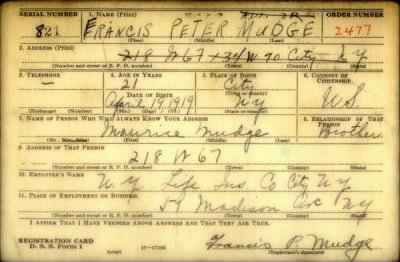 SERIAL NUMBER 1. NAME (Print) ORDER NUMBER
821 FRANCIS PETER MUDGE 2477
(First) (Middle) (Last)
2. ADDRESS (Print)
218 W 67 W 90 City N Y
(Number and street or R. F. D. number) (Town) (County) (State)
3. TELEPHONE 4. AGE IN YEARS 5. PLACE OF BIRTH 6. COUNTRY OF CITIZENSHIP
21 City
DATE OF BIRTH (Town or county)
April 19 1919 NY U.S.
(Exchange) (No.) (Mo.) (Day) (Yr.) (State or country)
7. NAME OF PERSON WHO WILL ALWAYS KNOW YOUR ADDRESS 8. RELATIONSHIP OF THAT PERSON
Maurice Mudge Brother
(Mr., Mrs., Miss) (First) (Middle) (Last)
9. ADDRESS OF THAT PERSON
218 W 67
(Number and street or R. F. D. number) (Town) (County) (State)
10. EMPLOYER'S NAME
N. Y. Life Ins Co City NY
11. PLACE OF EMPLOYMENT OR BUSINESS
51 Madison Ave NY
(Number and street or R. F. D. number) (Town) (County) (State)
I AFFIRM THAT I HAVE VERIFIED ABOVE ANSWERS AND THAT THEY ARE TRUE.
REGISTRATION CARD
D. S. S. Form 1 Francis P. Mudge
(Registrant's signature)